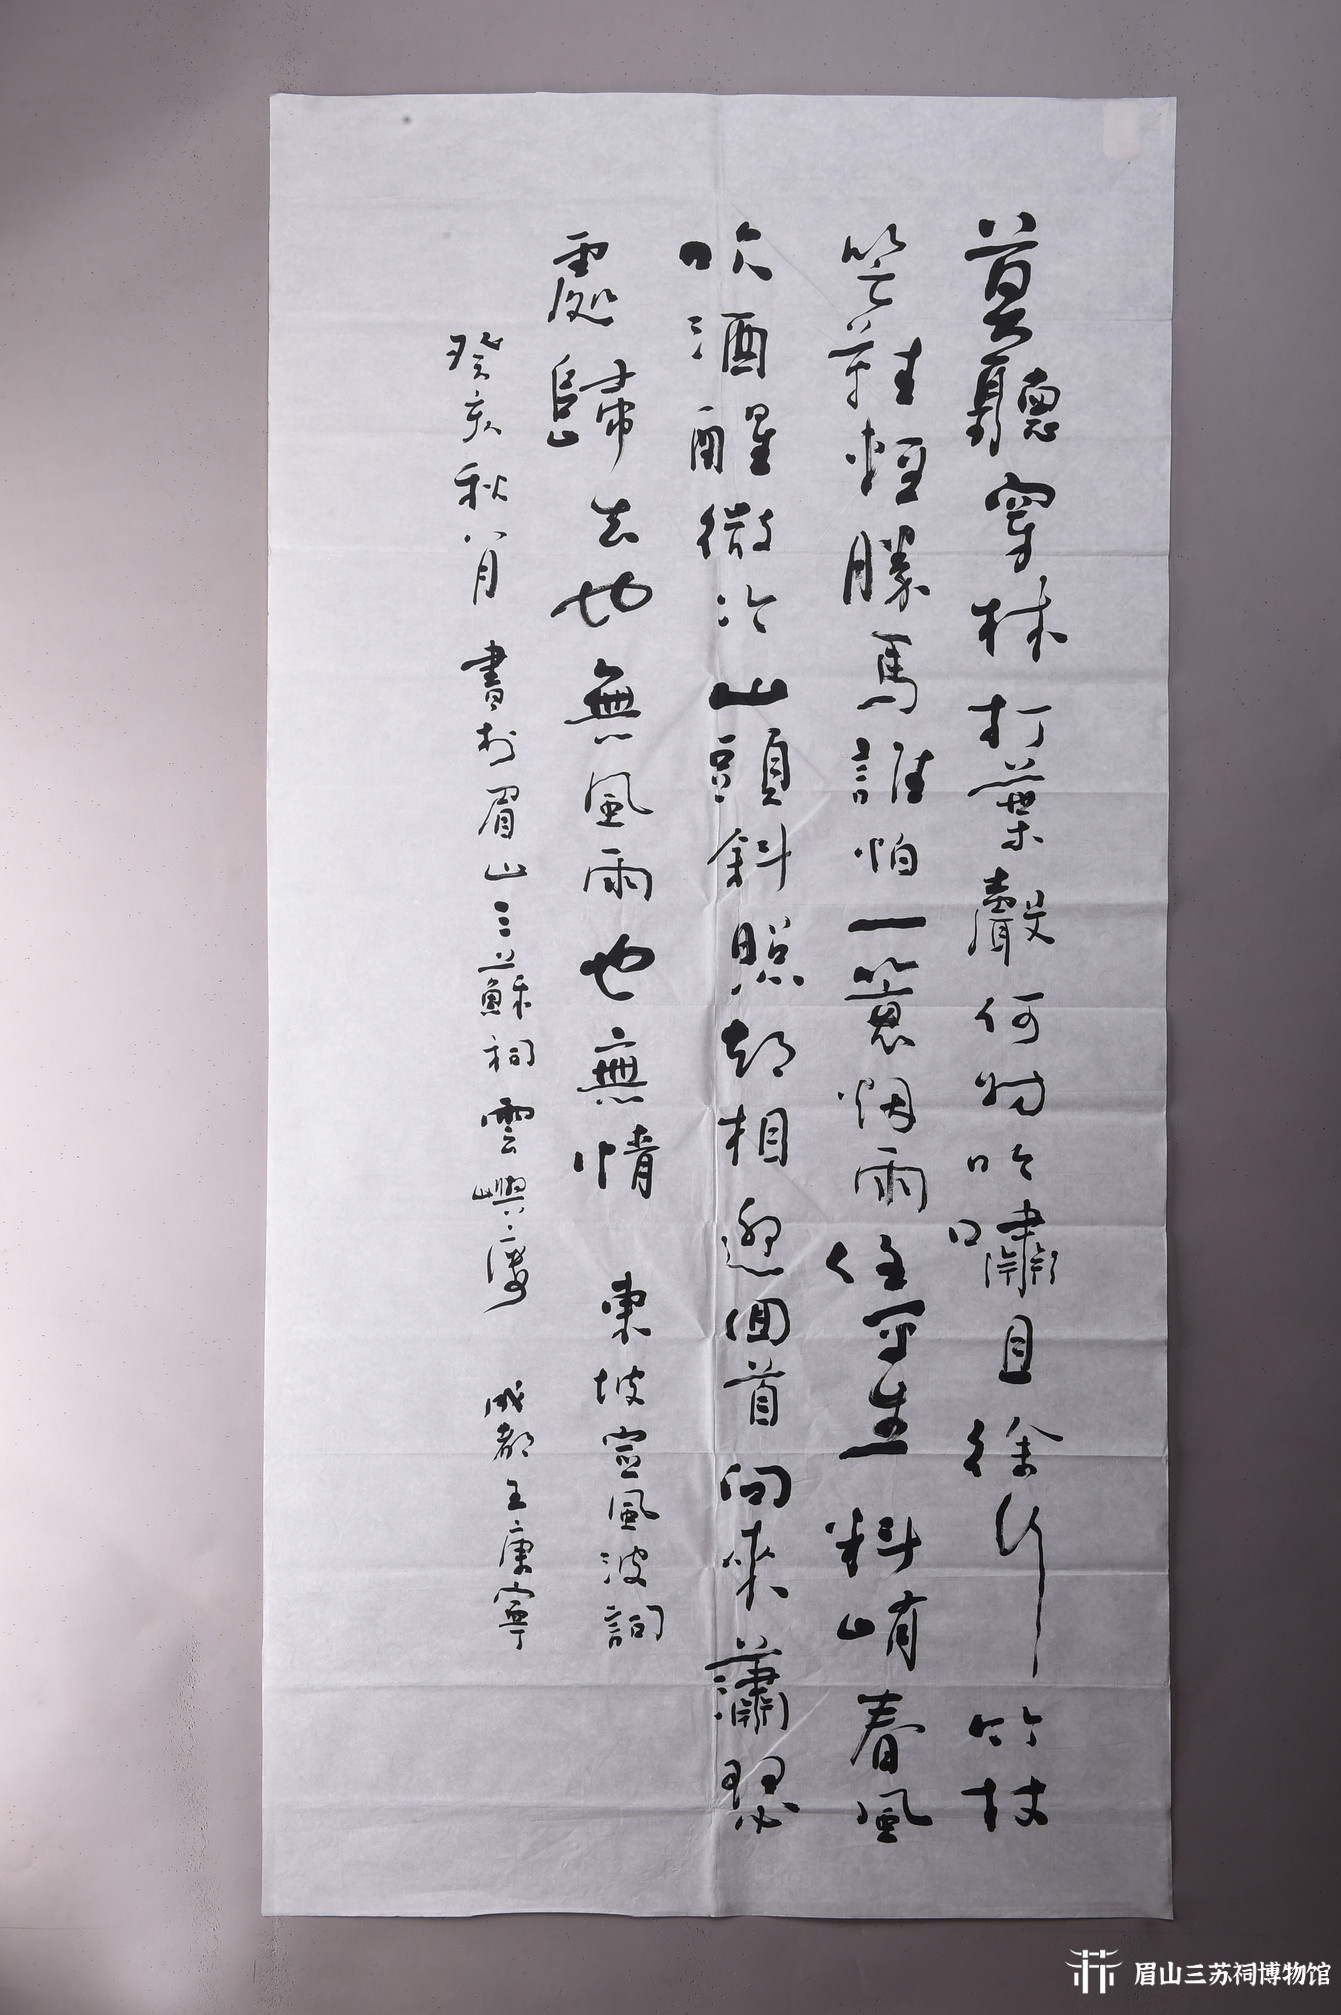 莫聽穿林打葉聲何妨吟嘯且徐行竹杖
芒鞋輕勝馬誰怕一蓑烟雨任平生料峭春風
吹酒醒微冷山頭斜照却相迎回首向來蕭瑟
處歸去也無風雨也無情 東坡定風波詞
癸亥秋八月 書於眉山三蘇祠雲嶼樓 成都王康寧
眉山三苏祠博物馆